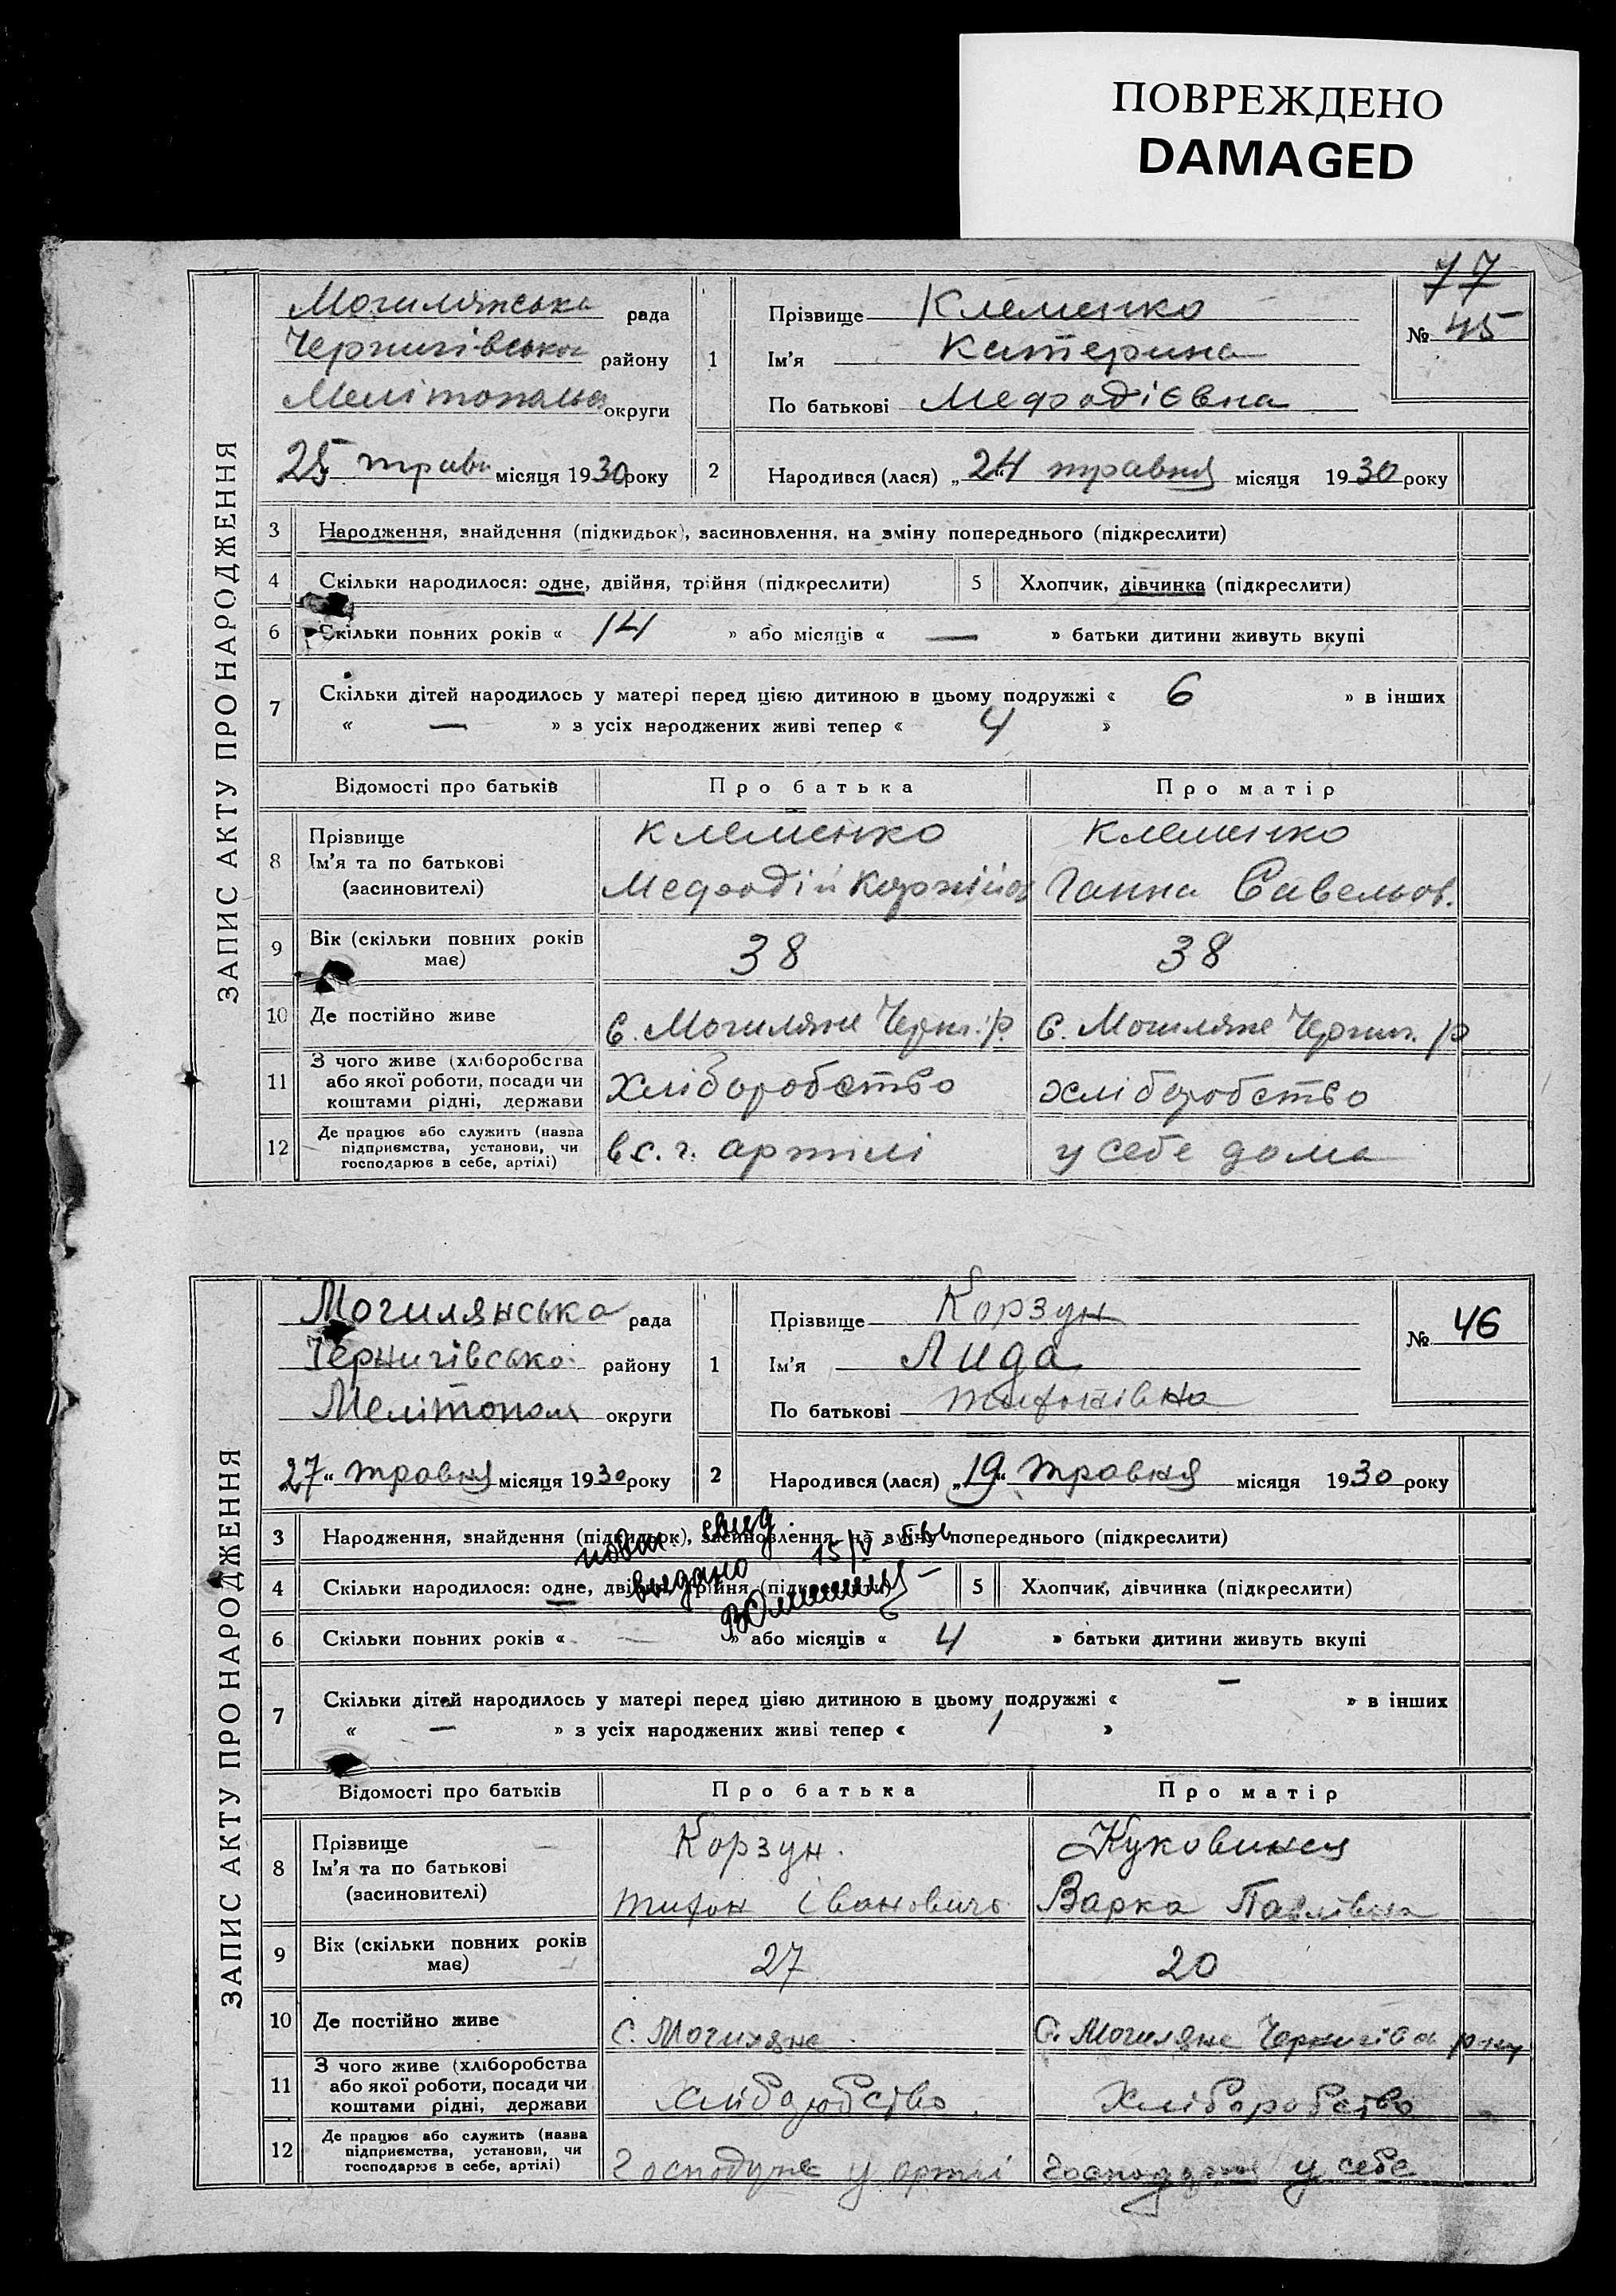 ПОВРЕЖДЕНО
DAMAGED
77
ЗАПИС АКТУ ПРО НАРОДЖЕННЯ
Могилянська рада
Чернигівського району
Мелітопольс округи
25 травн місяця 1930 року
1
Прізвище Клеменко
Ім'я Катерина
По батькові Мефодієвна
№ 45
2 Народився (лася) „24“ травня місяця 1930 року
3 Народження, знайдення (підкидьок), засиновлення, на зміну попереднього (підкреслити)
4 Скільки народилося: одне, двійня, трійня (підкреслити) 5 Хлопчик, дівчинка (підкреслити)
6 Скільки повних років « 14 » або місяців « — » батьки дитини живуть вкупі
7 Скільки дітей народилось у матері перед цією дитиною в цьому подружжі « 6 » в інших
« — » з усіх народжених живі тепер « 4 »
Відомості про батьків Про батька Про матір
8 Прізвище Клеменко Клеменко
Ім'я та по батькові Мефодій Корній Ганна Савельов.
(засиновителі)
9 Вік (скільки повних років має) 38 38
10 Де постійно живе С. Могиляне Черн. р. С. Могиляне Черниг. р
11 З чого живе (хліборобства або якої роботи, посади чи коштами рідні, держави Хліборобство хліборобство
12 Де працює або служить (назва підприємства, установи, чи господарює в себе, артілі) в с. г. артілі у себе дома
ЗАПИС АКТУ ПРО НАРОДЖЕННЯ
Могилянська рада
Чернигівсько району
Мелітопол округи
27 “ травня місяця 1930 року
1
Прізвище Корзун
Ім'я Лида
По батькові Тифонівна
№ 46
2 Народився (лася) „19“ травня місяця 1930 року
3 Народження, знайдення (підкидьок), засиновлення, на зміну попереднього (підкреслити)
видано
4 Скільки народилося: одне, двійня, трійня (підкреслити) 5 Хлопчик, дівчинка (підкреслити)
6 Скільки повних років « — » або місяців « 4 » батьки дитини живуть вкупі
7 Скільки дітей народилось у матері перед цією дитиною в цьому подружжі « — » в інших
« — » з усіх народжених живі тепер « 1 »
Відомості про батьків Про батька Про матір
8 Прізвище Корзун.
Ім'я та по батькові Тифон Івановичъ Варка Павлівна
(засиновителі)
9 Вік (скільки повних років має) 27 20
10 Де постійно живе С. Могиляне С. Могиляне Чернигів
11 З чого живе (хліборобства або якої роботи, посади чи коштами рідні, держави Хліборобство. Хліборобство
12 Де працює або служить (назва підприємства, установи, чи господарює в себе, артілі) у артілі у себе